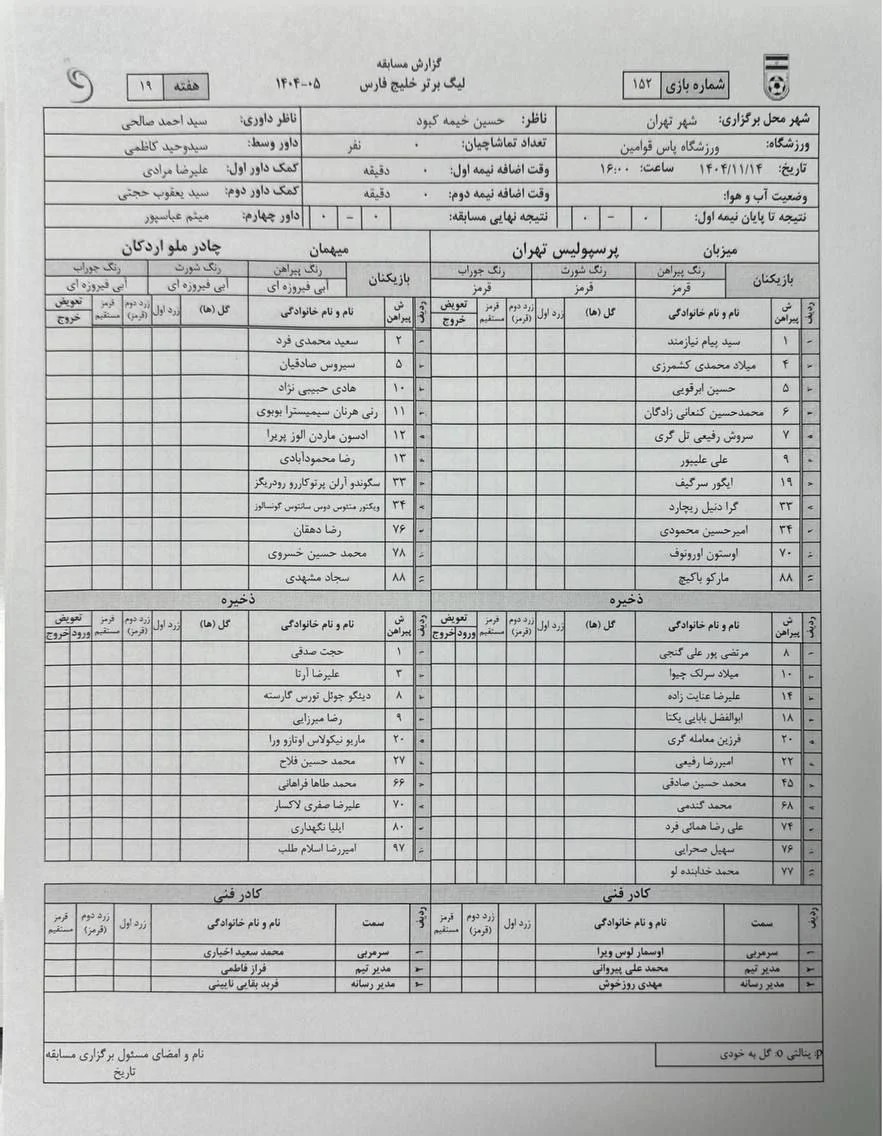 گزارش مسابقه
لیگ برتر خلیج فارس ۱۴۰۴-۰۵
شماره بازی ۱۵۲
هفته ۱۹
شهر محل برگزاری: شهر تهران ناظر: حسین خیمه کبود ناظر داوری: سید احمد صالحی
ورزشگاه: ورزشگاه پاس قوامین تعداد تماشاچیان: ۰ نفر داور وسط: سیدوحید کاظمی
تاریخ: ۱۴۰۴/۱۱/۱۴ ساعت: ۱۶:۰۰ وقت اضافه نیمه اول: ۰ دقیقه کمک داور اول: علیرضا مرادی
وضعیت آب و هوا: وقت اضافه نیمه دوم: ۰ دقیقه کمک داور دوم: سید یعقوب حجتی
نتیجه تا پایان نیمه اول: ۰ – ۰ نتیجه نهایی مسابقه: ۰ – ۰ داور چهارم: میثم عباسپور
میزبان پرسپولیس تهران
بازیکنان رنگ پیراهن رنگ شورت رنگ جوراب
قرمز قرمز قرمز
ردیف ش پیراهن نام و نام خانوادگی گل (ها) زرد اول زرد دوم (قرمز) قرمز مستقیم تعویض خروج
۱ ۱ سید پیام نیازمند
۲ ۴ میلاد محمدی کشمرزی
۳ ۵ حسین ابرقویی
۴ ۶ محمدحسین کنعانی زادگان
۵ ۷ سروش رفیعی تل گری
۶ ۹ علی علیپور
۷ ۱۹ ایگور سرگیف
۸ ۳۳ گرا دنیل ریچارد
۹ ۳۴ امیرحسین محمودی
۱۰ ۷۰ اوستون اورونوف
۱۱ ۸۸ مارکو باکیچ
ذخیره
ردیف ش پیراهن نام و نام خانوادگی گل (ها) زرد اول زرد دوم (قرمز) قرمز مستقیم تعویض ورود خروج
۱ ۸ مرتضی پور علی گنجی
۲ ۱۰ میلاد سرلک چیوا
۳ ۱۴ علیرضا عنایت زاده
۴ ۱۸ ابوالفضل بابایی یکتا
۵ ۲۰ فرزین معامله گری
۶ ۲۲ امیررضا رفیعی
۷ ۴۵ محمد حسین صادقی
۸ ۶۸ محمد گندمی
۹ ۷۴ علی رضا همائی فرد
۱۰ ۷۶ سهیل صحرایی
۱۱ ۷۷ محمد خدابنده لو
کادر فنی
ردیف سمت نام و نام خانوادگی زرد اول زرد دوم (قرمز) قرمز مستقیم
۱ سرمربی اوسمار لوس ویرا
۲ مدیر تیم محمد علی پیروانی
۳ مدیر رسانه مهدی روزخوش
میهمان چادر ملو اردکان
بازیکنان رنگ پیراهن رنگ شورت رنگ جوراب
آبی فیروزه ای آبی فیروزه ای آبی فیروزه ای
ردیف ش پیراهن نام و نام خانوادگی گل (ها) زرد اول زرد دوم (قرمز) قرمز مستقیم تعویض خروج
۱ ۲ سعید محمدی فرد
۲ ۵ سیروس صادقیان
۳ ۱۰ هادی حبیبی نژاد
۴ ۱۱ رنی هرنان سیمیسترا بوبوی
۵ ۱۲ ادسون ماردن الوز پریرا
۶ ۱۳ رضا محمودآبادی
۷ ۳۳ سگوندو آرلن پرتوکاررو رودریگز
۸ ۳۴ ویکتور متئوس دوس سانتوس گونسالوز
۹ ۷۶ رضا دهقان
۱۰ ۷۸ محمد حسین خسروی
۱۱ ۸۸ سجاد مشهدی
ذخیره
ردیف ش پیراهن نام و نام خانوادگی گل (ها) زرد اول زرد دوم (قرمز) قرمز مستقیم تعویض ورود خروج
۱ ۱ حجت صدقی
۲ ۳ علیرضا آرتا
۳ ۸ دیئگو جوئل تورس گارسته
۴ ۹ رضا میرزایی
۵ ۲۰ ماریو نیکولاس اوتازو ورا
۶ ۲۷ محمد حسین فلاح
۷ ۶۶ محمد طاها فراهانی
۸ ۷۰ علیرضا صفری لاکسار
۹ ۸۰ ایلیا نگهداری
۱۰ ۹۷ امیررضا اسلام طلب
کادر فنی
ردیف سمت نام و نام خانوادگی زرد اول زرد دوم (قرمز) قرمز مستقیم
۱ سرمربی محمد سعید اخباری
۲ مدیر تیم فراز فاطمی
۳ مدیر رسانه فرید بقایی نایینی
p: پنالتی o: گل به خودی
نام و امضای مسئول برگزاری مسابقه
تاریخ